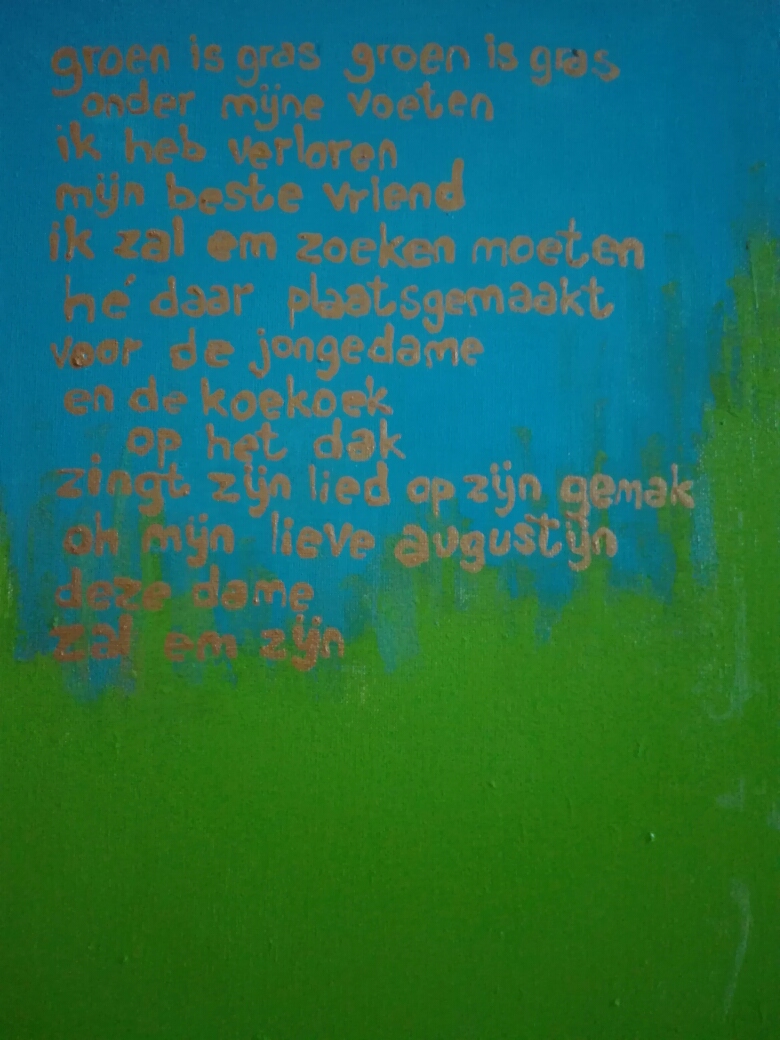 groen is gras groen is gras
onder mijne voeten
ik heb verloren
mijn beste vriend
ik zal em zoeken moeten
hé daar plaatsgemaakt
voor de jongedame
en de koekoek
op het dak
zingt zijn lied op zijn gemak
oh mijn lieve augustijn
deze dame
zal em zijn